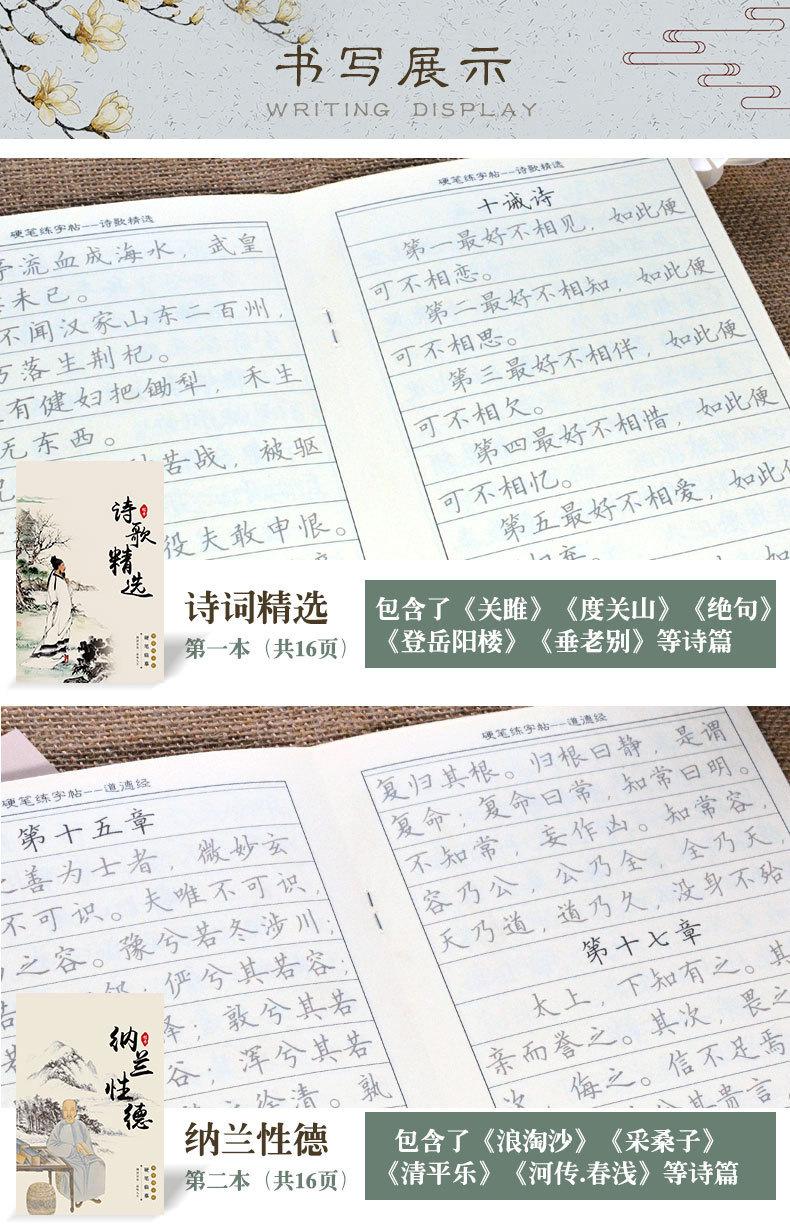 书写展示
WRITING DISPLAY
硬笔练字帖--诗歌精选
亭流血成海水，武皇
未已。
不闻汉家山东二百州，
落生荆杞。
有健妇把锄犁，禾生
无东西。
苦战，被驱
役夫敢申恨。
硬笔练字帖--诗歌精选
十诫诗
第一最好不相见，如此便
可不相恋。
第二最好不相知，如此便
可不相思。
第三最好不相伴，如此便
可不相欠。
第四最好不相惜，如此便
可不相忆。
第五最好不相爱，如此便
诗歌精选
诗词精选
第一本（共16页）
包含了《关雎》《度关山》《绝句》
《登岳阳楼》《垂老别》等诗篇
硬笔练字帖--道德经
第十五章
之善为士者，微妙玄
不可识。夫唯不可识，
之容。豫兮若冬涉川；
邻；俨兮其若容；
释；敦兮其若
谷；浑兮其若
徐清。孰
硬笔练字帖--道德经
复归其根。归根曰静，是谓
复命；复命曰常，知常曰明。
不知常，妄作凶。知常容，
容乃公，公乃全，全乃天，
天乃道，道乃久，没身不殆
第十七章
太上，下知有之。其
亲而誉之。其次，畏之
次，侮之。信不足焉
其贵言
纳兰性德
纳兰性德
第二本（共16页）
包含了《浪淘沙》《采桑子》
《清平乐》《河传.春浅》等诗篇